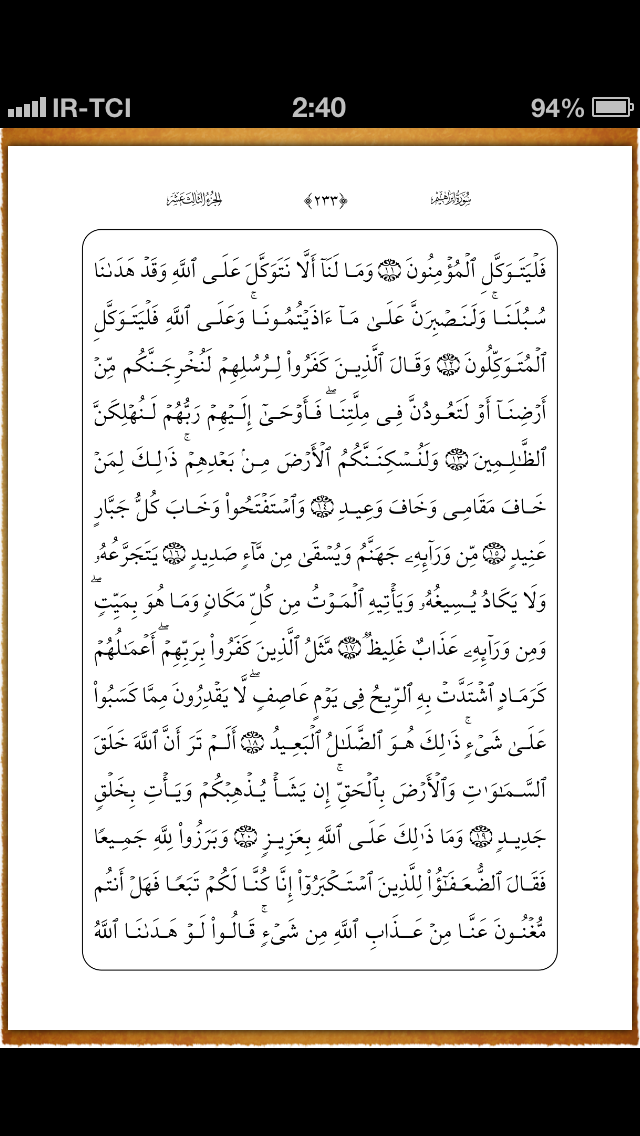 IR-TCI 2:40 94%
سُورَةُ إِبْرَاهِيمَ ﴿٢٣٣﴾ الجُزْءُ الثَّالِثَ عَشَرَ
فَلْيَتَوَكَّلِ ٱلْمُؤْمِنُونَ ١١ وَمَا لَنَآ أَلَّا نَتَوَكَّلَ عَلَى ٱللَّهِ وَقَدْ هَدَىٰنَا
سُبُلَنَا ۚ وَلَنَصْبِرَنَّ عَلَىٰ مَآ ءَاذَيْتُمُونَا ۚ وَعَلَى ٱللَّهِ فَلْيَتَوَكَّلِ
ٱلْمُتَوَكِّلُونَ ١٢ وَقَالَ ٱلَّذِينَ كَفَرُوا۟ لِرُسُلِهِمْ لَنُخْرِجَنَّكُم مِّنْ
أَرْضِنَآ أَوْ لَتَعُودُنَّ فِى مِلَّتِنَا ۖ فَأَوْحَىٰٓ إِلَيْهِمْ رَبُّهُمْ لَنُهْلِكَنَّ
ٱلظَّـٰلِمِينَ ١٣ وَلَنُسْكِنَنَّكُمُ ٱلْأَرْضَ مِنۢ بَعْدِهِمْ ۚ ذَٰلِكَ لِمَنْ
خَافَ مَقَامِى وَخَافَ وَعِيدِ ١٤ وَٱسْتَفْتَحُوا۟ وَخَابَ كُلُّ جَبَّارٍ
عَنِيدٍ ١٥ مِّن وَرَآئِهِۦ جَهَنَّمُ وَيُسْقَىٰ مِن مَّآءٍ صَدِيدٍ ١٦ يَتَجَرَّعُهُۥ
وَلَا يَكَادُ يُسِيغُهُۥ وَيَأْتِيهِ ٱلْمَوْتُ مِن كُلِّ مَكَانٍ وَمَا هُوَ بِمَيِّتٍ ۖ
وَمِن وَرَآئِهِۦ عَذَابٌ غَلِيظٌ ١٧ مَّثَلُ ٱلَّذِينَ كَفَرُوا۟ بِرَبِّهِمْ ۖ أَعْمَـٰلُهُمْ
كَرَمَادٍ ٱشْتَدَّتْ بِهِ ٱلرِّيحُ فِى يَوْمٍ عَاصِفٍ ۖ لَّا يَقْدِرُونَ مِمَّا كَسَبُوا۟
عَلَىٰ شَىْءٍ ۚ ذَٰلِكَ هُوَ ٱلضَّلَـٰلُ ٱلْبَعِيدُ ١٨ أَلَمْ تَرَ أَنَّ ٱللَّهَ خَلَقَ
ٱلسَّمَـٰوَٰتِ وَٱلْأَرْضَ بِٱلْحَقِّ ۚ إِن يَشَأْ يُذْهِبْكُمْ وَيَأْتِ بِخَلْقٍ
جَدِيدٍ ١٩ وَمَا ذَٰلِكَ عَلَى ٱللَّهِ بِعَزِيزٍ ٢٠ وَبَرَزُوا۟ لِلَّهِ جَمِيعًا
فَقَالَ ٱلضُّعَفَـٰٓؤُا۟ لِلَّذِينَ ٱسْتَكْبَرُوٓا۟ إِنَّا كُنَّا لَكُمْ تَبَعًا فَهَلْ أَنتُم
مُّغْنُونَ عَنَّا مِنْ عَذَابِ ٱللَّهِ مِن شَىْءٍ ۚ قَالُوا۟ لَوْ هَدَىٰنَا ٱللَّهُ